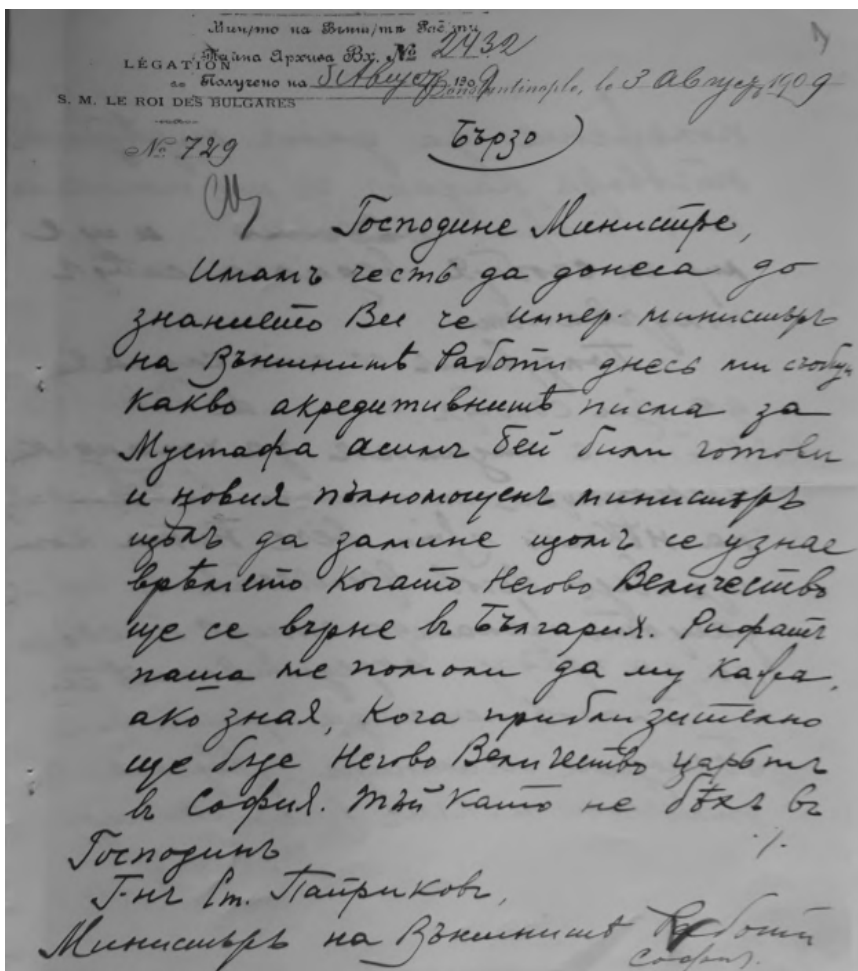 Мин/то на Външ/тѣ Раб/ти
Тайна Архива Вх. № 2432
LÉGATION
Получено на 5 Августъ 1909
DE
Constantinople, le 3 Августъ 1909
S. M. LE ROI DES BULGARES
№ 729
Бързо
Господине Министре,
Имамъ честь да донеса до
знанието Ви че импер. министъръ
на Външнитѣ Работи днесь ми съобщи
какво акредитивнитѣ писма за
Мустафа Асимъ бей били готови
и новия пълномощенъ министъръ
щѣлъ да замине щомъ се узнае
врѣмето когато Негово Величество
ще се върне въ България. Рифатъ
паша ме помоли да му кажа,
ако зная, кога приблизително
ще бѫде Негово Величество царьтъ
въ София. Тъй като не бѣхъ въ
./.
Господинъ
Г-нъ Ст. Паприковъ,
Министъръ на Външнитѣ Работи
София.